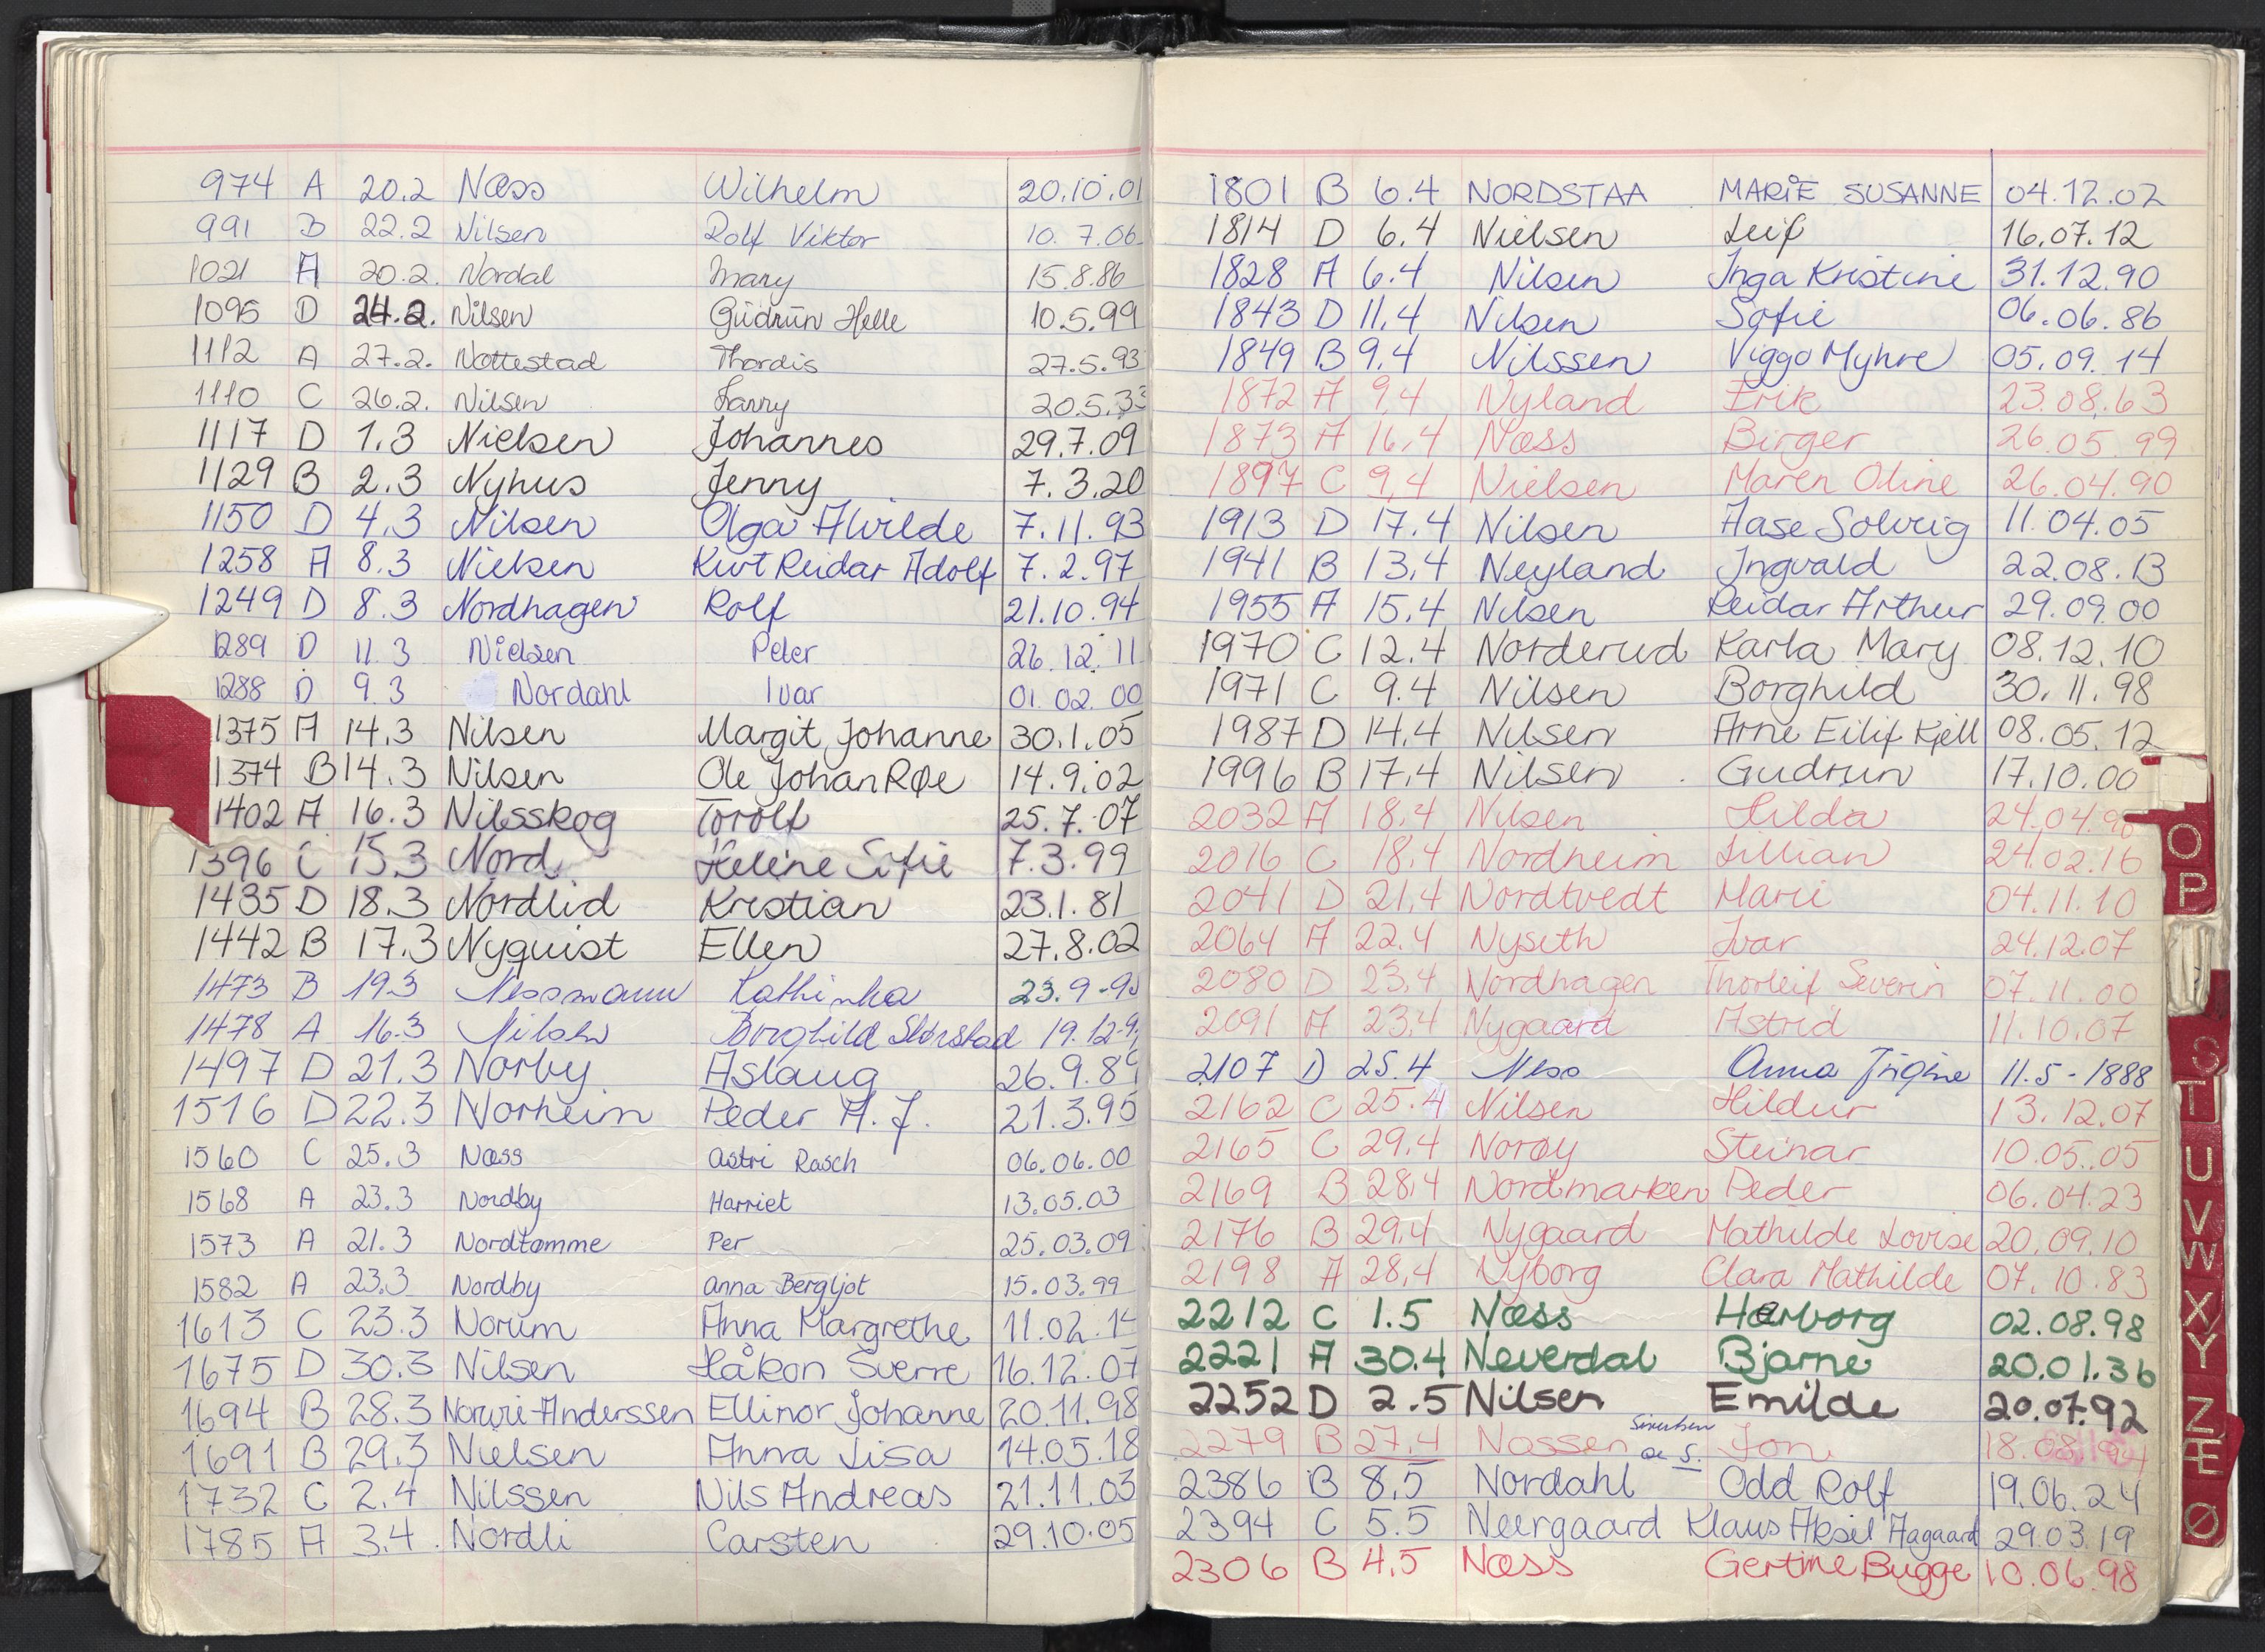 974 A 20.2 Næss Wilhelm 20.10.01
991 B 22.2 Nilsen Rolf Viktor 10. 7.06
1021 A 20.2. Nordal Mary 15.8.86
1095 D 24.2. Nilsen Gudrun Helle 10.5.99
1112 A 27.2. Nottestad Thordis 27.5.93
1110 C 26.2. Nilsen Fanny 20.5.33
1117 D 1.3 Nielsen Johannes 29.7.09
1129 B 2.3 Nyhus Jenny 7.3.20
1150 D 4.3 Nilsen Olga Alvilde 7.11.93
1258 A 8.3 Nielsen Kurt Reidar Adolf 7.2.97
1249 D 8.3 Nordhagen Rolf 21.10.94
1289 D 11.3 Nielsen Peter 26.12.11
1288 D 9.3 Nordahl Ivar 01.02.00
1375 A 14.3 Nilsen Margit Johanne 30.1.05
1374 B 14.3 Nilsen Ole Johan Røe 14.9.02
1402 A 16.3 Nilsskog Torolf 25.7.07
1396 C 15.3 Nord Helene Sofie 7.3.99
1435 D 18.3 Nordlid Kristian 23.1.81
1442 B 17.3 Nyquist Ellen 27.8.02
1473 B 19.3 Nessmann Kathinka 23.9-9
1478 A 16.3 Nilsen Borghild Storstad 19.12-9
1497 D 21.3 Norby Aslaug 26.9.8
1516 D 22.3 Norheim Peder A.J. 21.3.95
1560 C 25.3 Næss Astri Rasch 06.06.00
1568 A 23.3 Nordby Harriet 13.05.03
1573 A 21.3 Nordtømme Per 25.03.09
1582 A 23.3 Nordby Anna Bergljot 15.03.99
1613 C 23.3 Norum Anna Margrethe 11.02.14
1675 D 30.3 Nilsen Håkon Sverre 16.12.07
1694 B 28.3 Norwie-Anderssen Ellinor Johanne 20.11.98
1691 B 29.3 Nielsen Anna Lisa 14.05.18
1732 C 2.4 Nilssen Nils Andreas 21.11.03
1785 A 3.4 Nordli Carsten 29.10.05
1801 B 6.4 NORDSTAA MARIE SUSANNE 04.12.02
1814 D 6.4 Nielsen Leif 16.07.12
1828 A 6.4 Nilsen Inga Kristine 31.12.90
1843 D 11.4 Nilsen Sofie 06.06.86
1849 B 9.4 Nilssen Viggo Myhre 05.09.14
1872 A 9.4 Nyland Erik 23.08.63
1873 A 16.4 Næss Birger 26.05.99
1897 C 9.4 Nielsen Maren Oline 26.04.90
1913 D 17.4 Nilsen Aase Solveig 11.04.05
1941 B 13.4 Neyland Ingvald 22.08.13
1955 A 15.4 Nilsen Reidar Arthur 29.09.00
1970 C 12.4 Norderud Karla Mary 08.12.10
1971 C 9.4 Nilsen Borghild 30.11.98
1987 D 14.4 Nilsen Arne Eilif Kjell 08.05.12
1996 B 17.4 Nilsen Gudrun 17.10.00
2032 A 18.4 Nilsen Hilda 24.04.9
2016 C 18.4 Nordheim Lillian 24.02.16
2041 D 21.4 Nordtvedt Marie 04.11.10
2064 A 22.4 Nyseth Ivar 24.12.07
2080 D 23.4 Nordhagen Thorleif Severin 07.11.00
2091 A 23.4 Nygaard Astrid 11.10.07
2107 D 25.4 Ness Anna Jrgine 11.5-1888
2162 C 25.4 Nilsen Hildur 13.12.07
2165 C 29.4 Norøy Steinar 10.05.05
2169 B 28.4 Nordmarken Peder 06.04.23
2176 B 29.4 Nygaard Mathilde Lovise 20.09.10
2198 A 28.4 Nyborg Clara Mathilde 07.10.83
2212 C 1.5 Næss Harborg 02.08.98
2221 A 30.4 Neverdal Bjarne 20.01.36
2252 D 2.5 Nilsen Emilde 20.07.92
2279 B 27.4 Nossen se S. Jon
2386 B 8.5 Nordahl Odd Rolf 19.06.24
2394 C 5.5 Neergaard Klaus Aksel Aagaard 29.03.19
2306 B 4.5 Næss Gertine Bugge 10.06.98
O
P
S
T
U
V
W
X
Y
Z
Æ
Ø